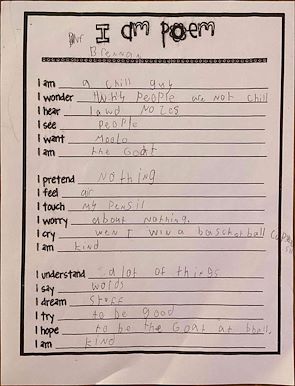 I am poem
Mr Brennan
I am a chill guy
I wonder why people are not chill
I hear lawd noizes
I see people
I want
I am the Goat
I pretend nothing
I feel air
I touch my pensil
I worry about nothing.
I cry wen I win a basketball
I am kind
I understand a lot of things
I say words
I dream stuff
I try to be good
I hope to be the Goat at bball.
I am kind